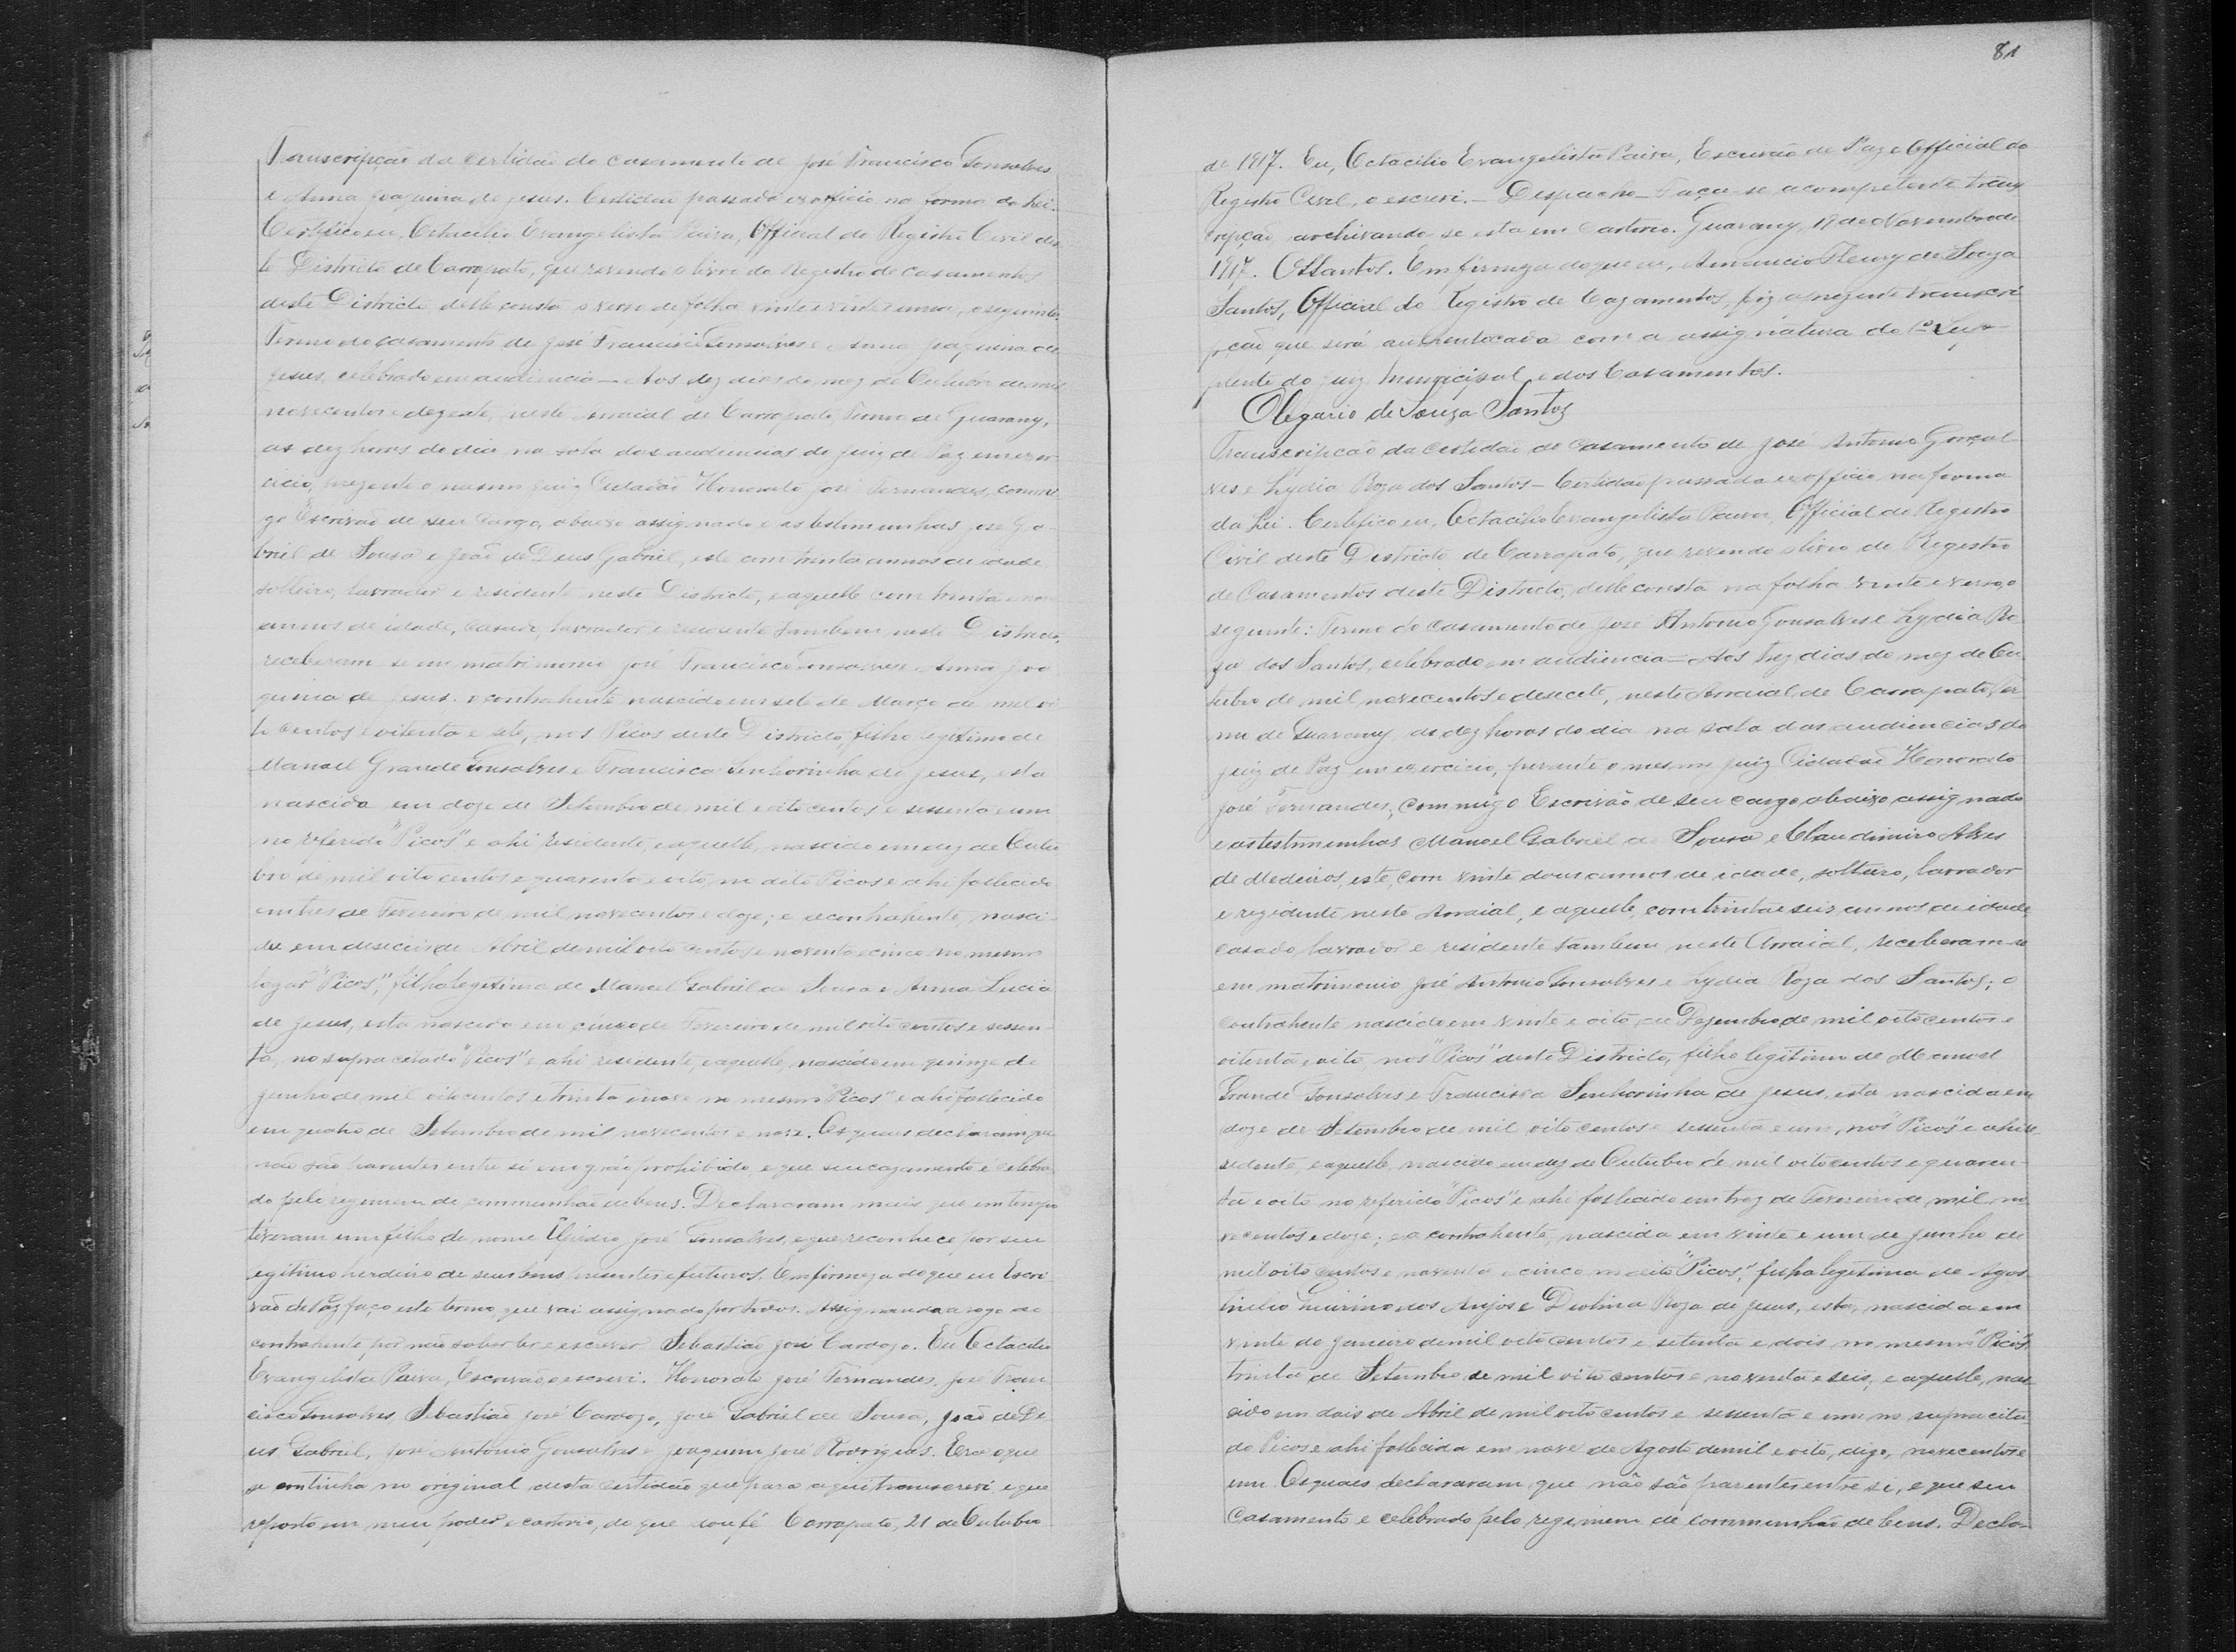 Transcripção da certidão do casamento de José Francisco Gonsalves
e Anna Joaquina de Jesus. Certidão passada ex officio na forma da Lei.
Certifico eu, Octacilio Evangelista Paiva, Official do Registro Civil des
te Districto de Carrapato, que revendo o livro do Registro de casamentos
deste Districto delle consta o verso de folha vinte e vinte uma, o seguinte:
Termo do casamento de José Francisco Gonsalves e Anna Joaquina de
Jesus, celebrado em audiencia — Aos dez dias do mez de Outubro de mil
novecentos e dezesete, neste Arraial de Carrapato, Termo de Guarany,
as dez horas do dia, na sala das audiencias do Juiz de Paz em exer
cicio, prezente o mesmo Juiz Cidadão Honorato José Fernandes, commi
go Escrivão de seu cargo, abaixo assignado e as testimunhas José Ga-
briel de Sousa e João de Deus Gabriel, este com trinta annos de idade
solteiro, lavrador e residente neste Districto, e aquelle com trinta e
annos de idade, casado, lavrador e residente tambem neste Districto,
receberam se em matrimonio José Francisco Gonsalves e Anna Joa
quina de Jesus. o contrahente nascido em sete de Março de mil oi
to centos e oitenta e sete, nos Picos deste Districto, filho legitimo de
Manoel Grande Gonsalves e Francisca Senhorinha de Jesus, esta
nascida em doze de Setembro de mil e oito centos e sessenta e um
no referido "Picos" e ahi residente, e aquelle, nascido em dez de Outu
bro de mil oito centos e quarenta e oito, no dito Picos e ahi fallecido
em tres de Fevereiro de mil novecentos e doze; e a contrahente, nasci-
da em deseseis de Abril de mil oito centos e noventa e cinco no mesmo
logar "Picos", filha legitima de Manoel Gabriel de Sousa e Anna Lucia
de Jesus, esta nascida em cinco de Fevereiro de mil oito centos e sessen-
ta, no supra citado "Picos" e ahi residente, e aquelle, nascido em quinze de
Junho de mil oitocentos e trinta e nove no mesmo "Picos" e ahi fallecido
em quatro de Setembro de mil novecentos e nove. Os quaes declararam que
não são parentes entre si em gráo prohibido, e que seu cazamento é celebra
do pelo regimem de communhão de bens. Declararam mais que em tempo
tiveram um filho de nome José Gonsalves, e que reconhece por seu
legitimo herdeiro de seus bens presentes e futuros. Em firmeza do que eu Escri
vão de Paz faço este termo, que vai assignado por todos. Assignando a rogo da
contrahente, por não saber ler e escrever Sebastião José Cardozo. Eu Octacilio
Evangelista Paiva, Escrivão o escrevi. Honorato José Fernandes. José Fran
cisco Gonsalves, Sebastião José Cardozo, José Gabriel de Sousa, João de De
us Gabriel, José Antonio Gonsalves e Joaquim José Rodrigues. Era o que
se continha no original desta certidão que para aqui transcrevi e que
reporto em meu poder e cartorio, do que dou fé Carrapato, 21 de Outubro
81
de 1917. Eu, Octacilio Evangelista Paiva, Escrivão de Paz e Official do
Registro Civil, o escrevi. — Despacho — Faça-se a competente trans
cripção archivando se esta em cartorio. Guarany, 17 de Novembro de
1917. OSSantos. Em firmeza do que eu, Amancio Fleury de Souza
Santos, Official do Registro de Cazamentos, fiz a prezente transcri
pção que será authenticada com a assignatura do 1º Sup-
plente do Juiz Municipal e dos Casamentos.
Olegario de Souza Santos
Transcripção da Certidão de Casamento de José Antonio Gonçal
ves e Lydia Roza dos Santos — Certidão passada ex officio na forma
da Lei. Certifico eu, Octacilio Evangelista Paiva, Official do Registro
Civil deste Districto de Carrapato, que revendo o livro de Registro
de Casamentos deste Districto, delle consta na folha vinte e verso, o
seguinte: Termo do Casamento de José Antonio Gonsalves e Lydia Ro
za dos Santos, celebrado em audiencia — Aos dez dias do mez de Ou
tubro de mil novecentos e desecete, neste Arraial de Carrapato, Ter
mo de Guarany, as dez horas do dia na sala das audiencias do
Juiz de Paz em exercicio, prezente o mesmo Juiz Cidadão Honorato
José Fernandes, commigo Escrivão de seu cargo abaixo assignado
e as testimunhas Manoel Gabriel de Sousa e Claudimiro Alves
de Medeiros, este, com vinte dous annos de idade, solteiro, lavrador
e rezidente neste Arraial, e aquelle, com trinta e seis annos de idade,
casado, lavrador e residente tambem neste Arraial, receberam-se
em matrimonio José Antonio Gonsalves e Lydia Roza dos Santos; o
contrahente nascido em vinte e oito de Dezembro de mil oitocentos e
oitenta e oito, nos "Picos" deste Districto, filho legitimo de Manoel
Grande Gonsalves e Francisca Senhorinha de Jesus, esta nascida em
doze de Setembro de mil oito centos e sessenta e um, nos "Picos" e ahi re-
sidente, e aquelle, nascido em dez de Outubro de mil oitocentos e quaren-
ta e oito no referido "Picos" e ahi fallecido em trez de Fevereiro de mil no
vecentos e doze; e a contrahente, nascida em vinte e um de Junho de
mil oito centos e noventa e cinco no dito "Picos", filha legitima de Agos-
tinho Quirino dos Anjos e Deolina Roza de Jesus, esta, nascida em
vinte de Janeiro de mil oito centos e setenta e dois, no mesmo "Picos"
trinta de Setembro de mil oito centos e noventa e seis, e aquelle, nas-
cido em dois de Abril de mil oito centos e sessenta e um no supra cita-
do Picos e ahi fallecida em nove de Agosto de mil e oito, digo, novecentos e
um. Os quaes declararam que não são parentes entre si, e que seu
Casamento e celebrado pelo regimem de communhão de bens. Decla-